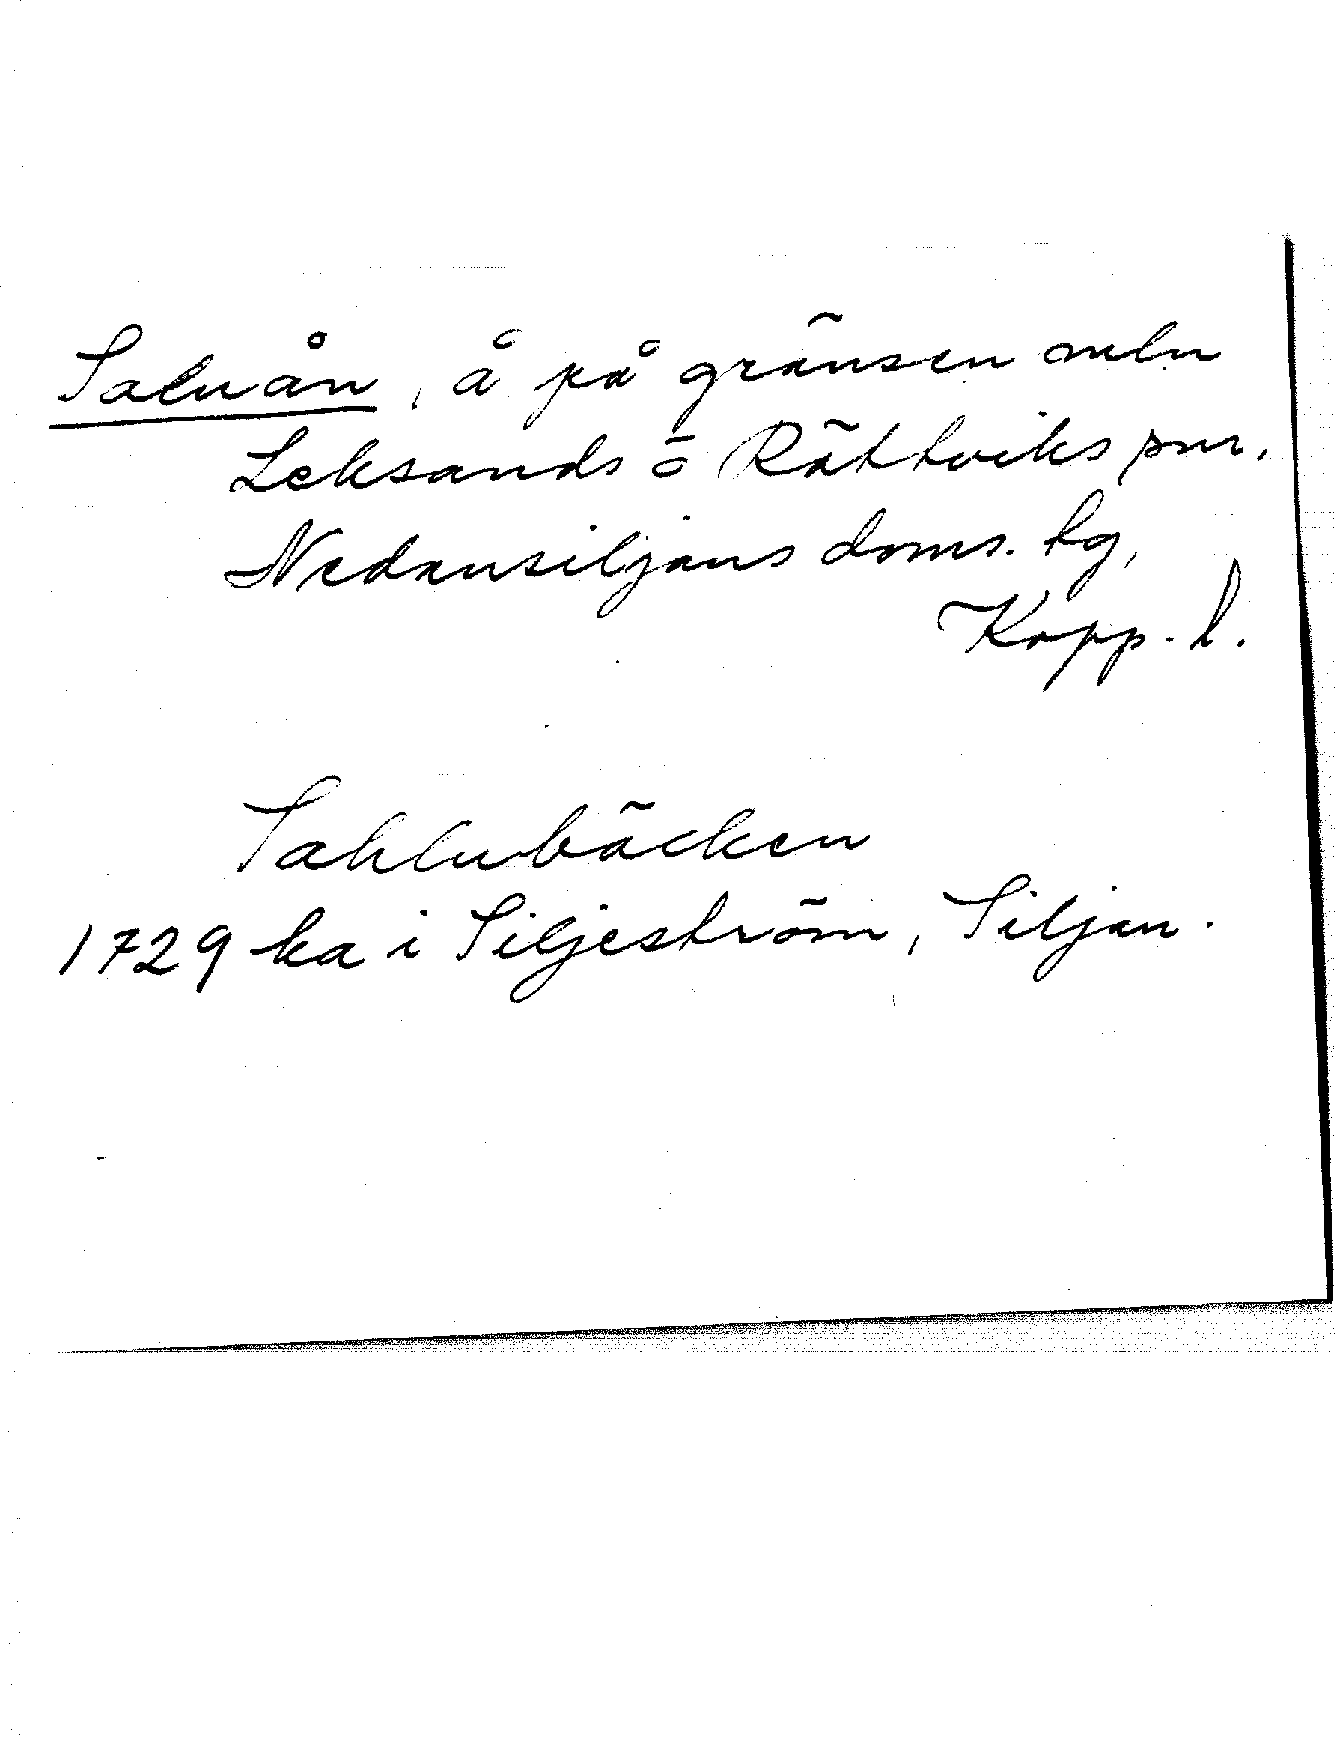 Saluån, å på gränsen meln
Leksands o Rättviks snr,
Nedansiljans doms. tg,
Kopp. l.
Sahlubäcken
1729 ka i Siljeström, Siljan.